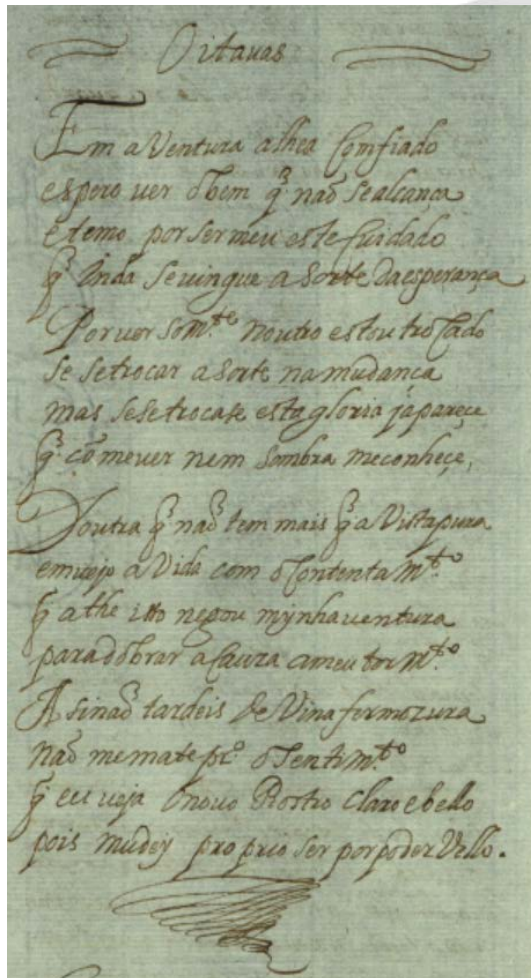 Oitauas
Em a Ventura alhea Comfiado
espero uer o bem q̃ naõ se alcança
e temo por ser meu este Cuidado
q̃ Inda se uingue a sorte da esperança
Por uer som.te noutro estou trocado
se se trocar a sorte na mudanca
mas se se trocase esta gloria ja pareçe
q̃ cõ me uer nem sombra me conheçe,
Doutra q̃ naõ tem mais q̃ a Vista pura
emuejo a Vida com o Contentam.to
q̃ athe isto negou mynha uentura
para dobrar a Cauza a meu torm.to
A sinaõ tardeis de Vina fermozura
naõ me mate pr.o o Sentim.to
q̃ eu ueja o nouo Rostro claro e bello
pois mudey proprio ser por poder Vello.